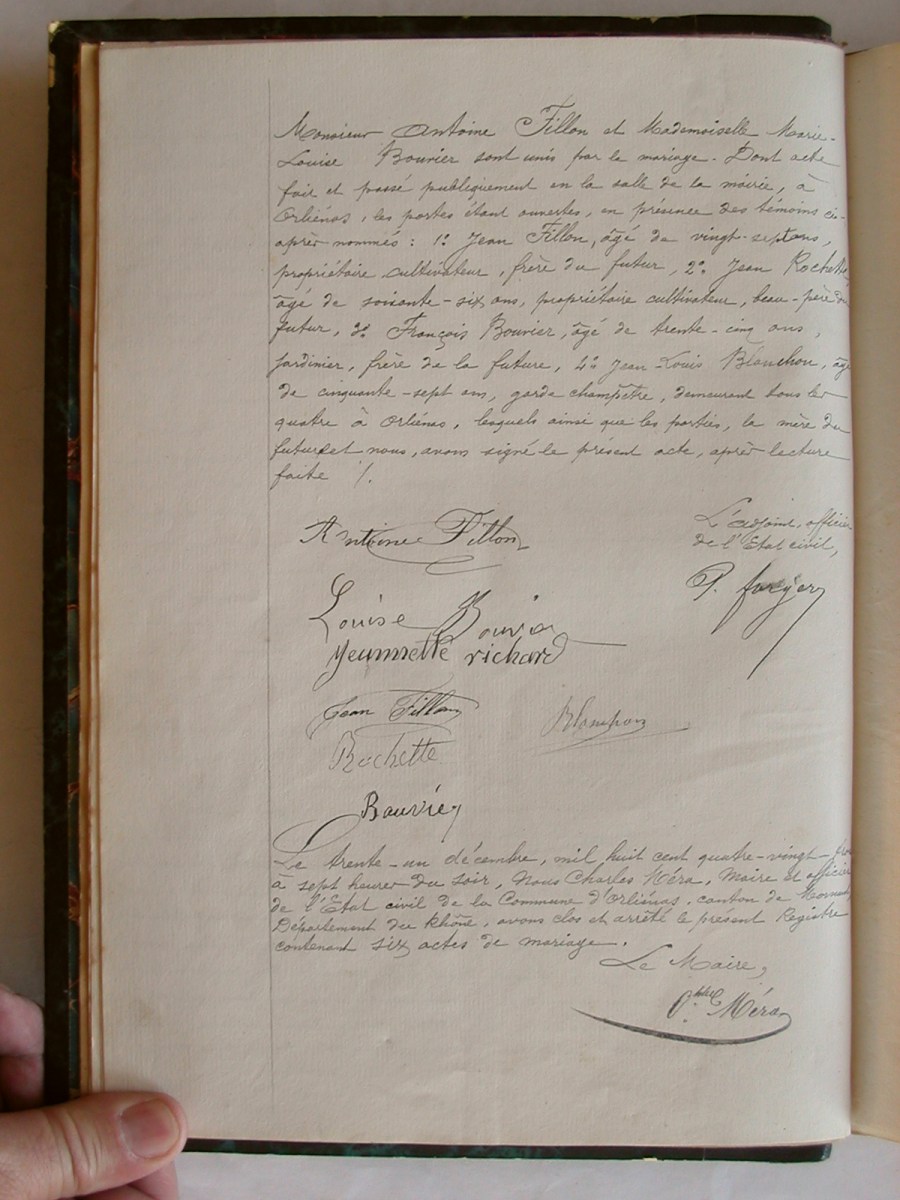 Monsieur Antoine Fillon et Mademoiselle Marie-
Louise Bouvier sont unis par le mariage. Dont acte
fait et passé publiquement en la salle de la mairie, à
Orliénas, les portes étant ouvertes, en présence des témoins ci-
après nommés : 1º Jean Fillon, âgé de vingt-sept ans,
propriétaire cultivateur, frère du futur, 2º Jean Rochette,
âgé de soixante-six ans, propriétaire cultivateur, beau-père du
futur, 3º François Bouvier, âgé de trente-cinq ans,
jardinier, frère de la future, 4º Jean-Louis Blanchon, âgé
de cinquante-sept ans, garde champêtre, demeurant tous les
quatre à Orliénas, lesquels ainsi que les parties, la mère du
futur et nous, avons signé le présent acte, après lecture
faite /.
L'adjoint, officier
de l'Etat civil,
Antoine Fillon
P.
Louise Bouvier
Jeunnette richard
Jean Fillon
Blanchon
Rochette
Bouvier
Le trente-un décembre, mil huit cent quatre-vingt-
à sept heures du soir, Nous Charles Méra, Maire et officier
de l'Etat civil de la Commune d'Orliénas, canton de Mornant
Département du Rhône, avons clos et arrêté le présent Registre
contenant six actes de mariage.
Le Maire,
Méra